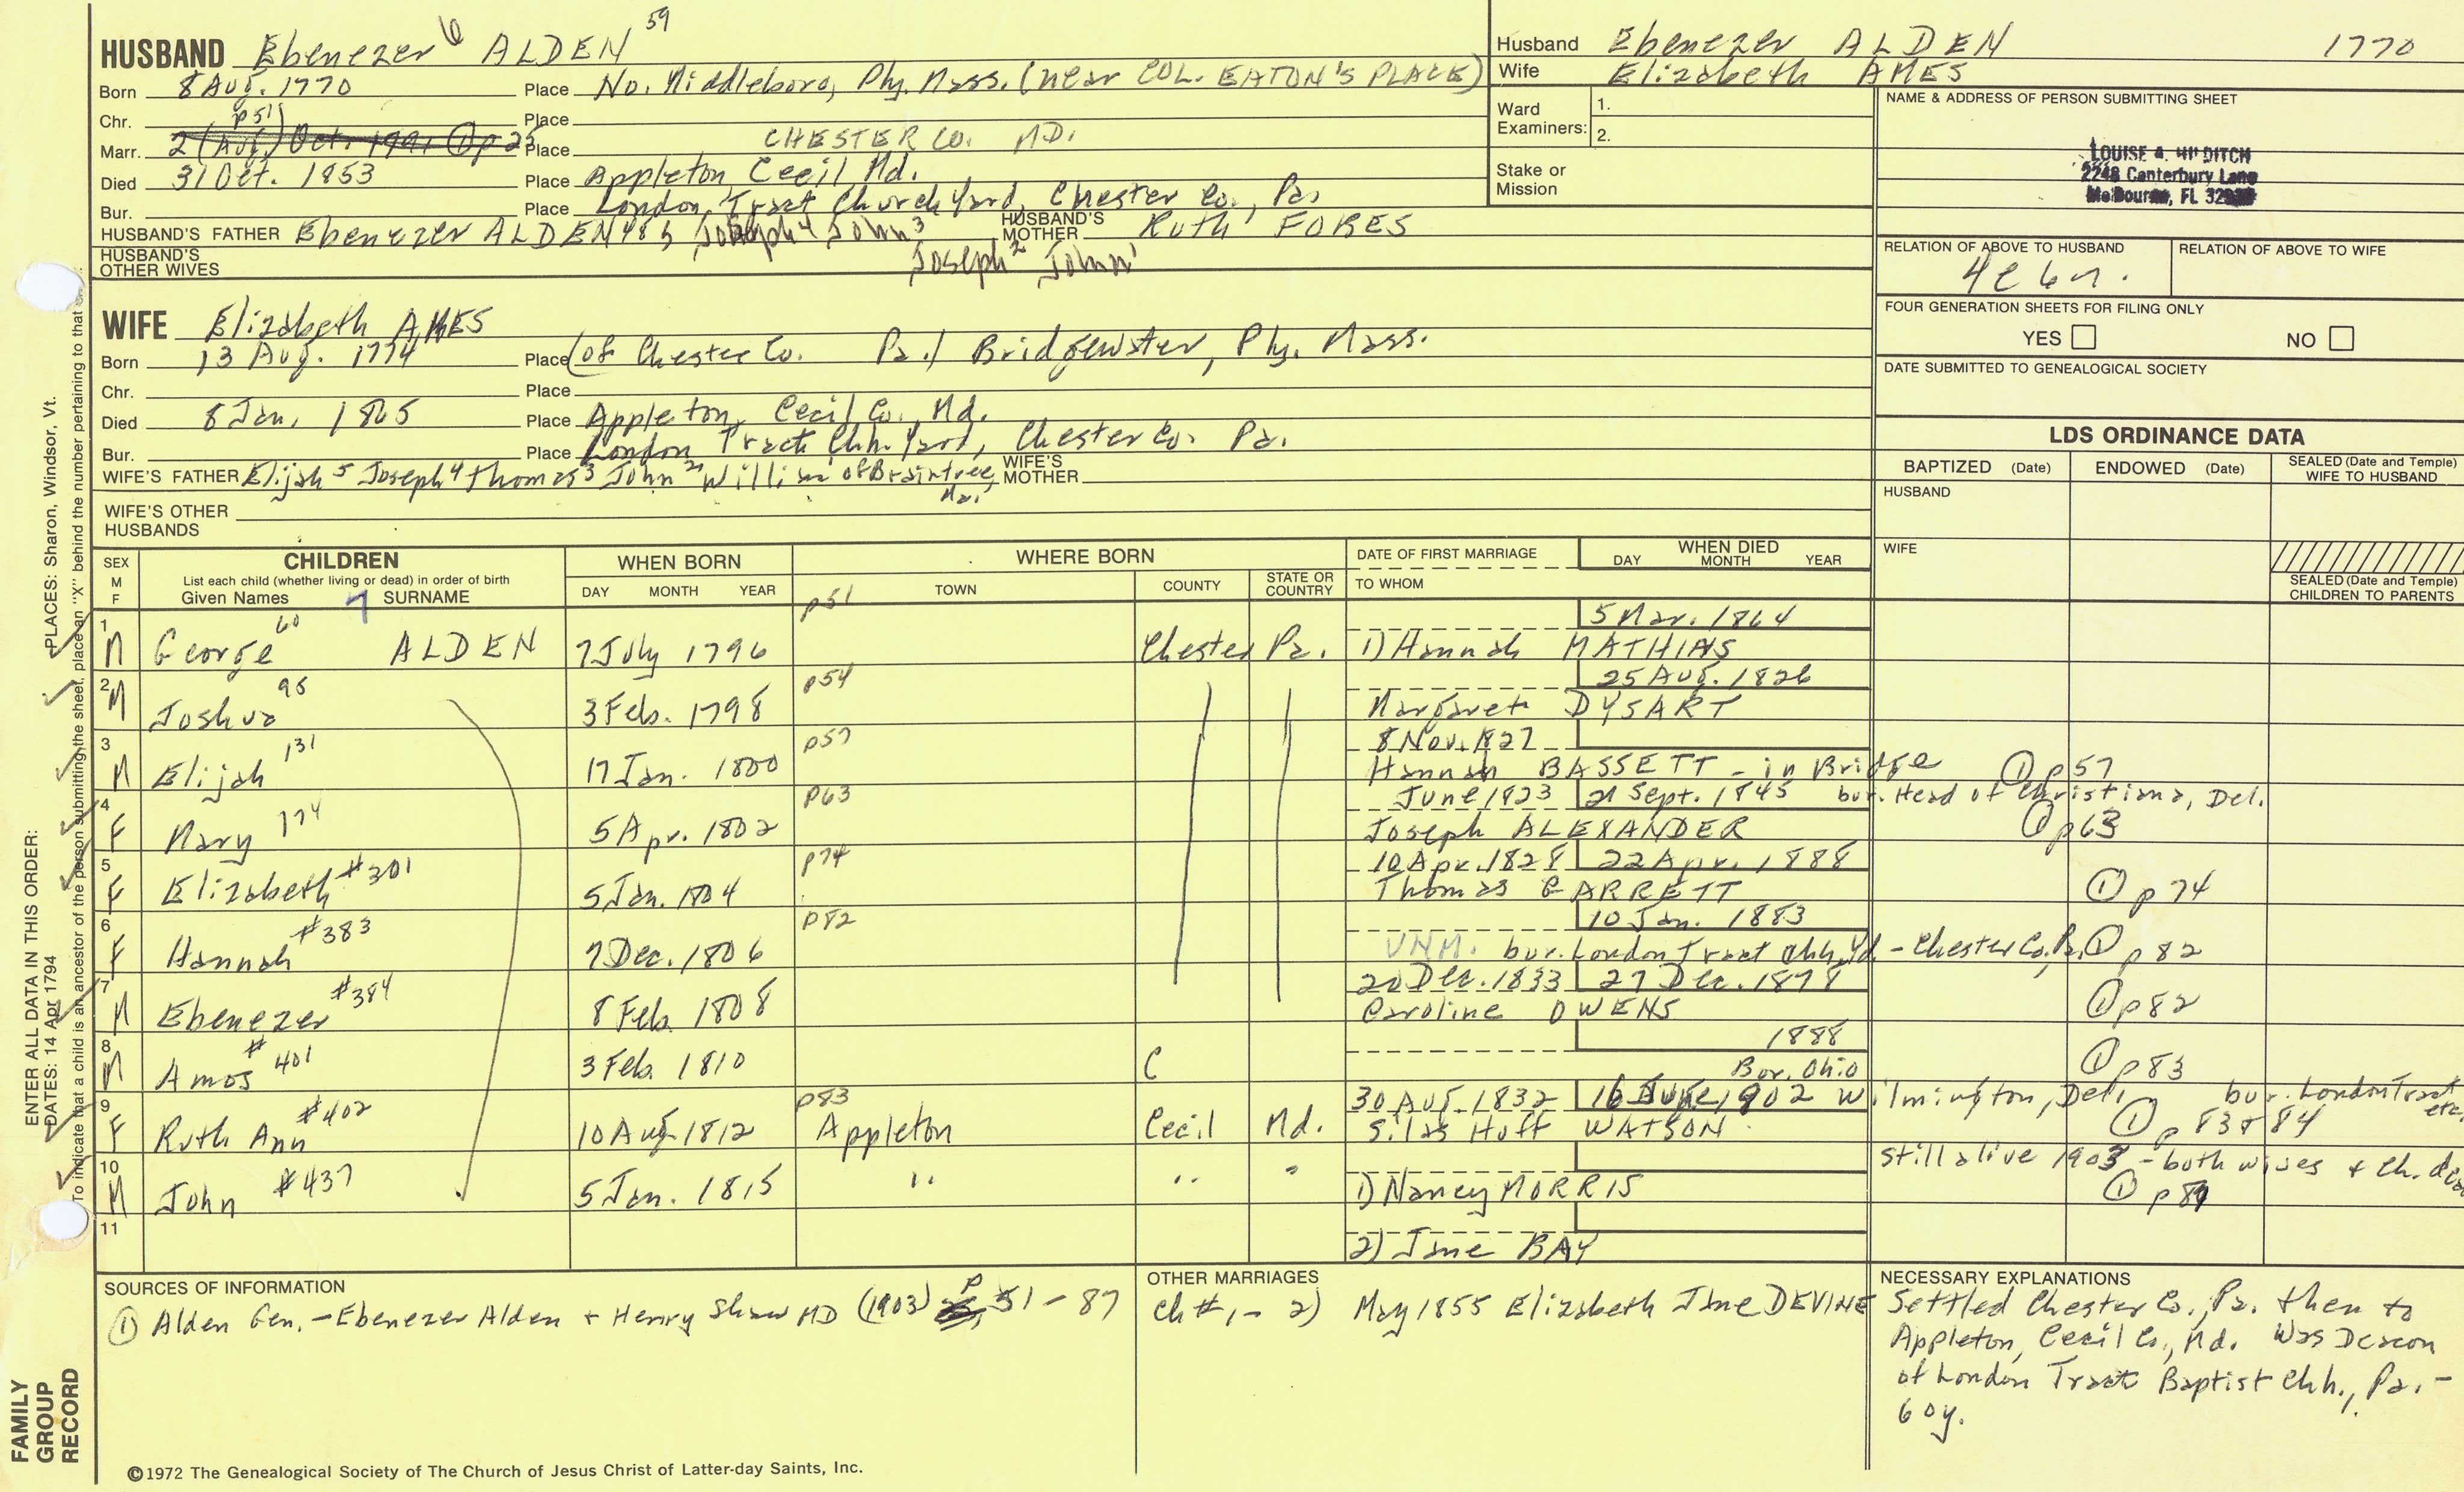 HUSBAND Ebenezer 6 ALDEN 59
Born 8 Aug. 1770 Place No. Middleboro, Ply. Mass. (near COL. EATON'S PLACE)
Chr. p51 Place
Marr. 2 (Aug) Oct. 1791 ① p 25 Place CHESTER CO. MD.
Died 31 Oct. 1853 Place Appleton, Cecil Md.
Bur. Place London Tract Church Yard, Chester Co., Pa.
HUSBAND'S FATHER Ebenezer ALDEN Joseph 4 John 3 HUSBAND'S MOTHER Ruth FOBES
Joseph 2 John 1
HUSBAND'S OTHER WIVES
Husband Ebenezer ALDEN 1770
Wife Elizabeth AMES
Ward Examiners: 1.
2.
Stake or Mission
NAME & ADDRESS OF PERSON SUBMITTING SHEET
LOUISE A. HILDITCH
2248 Canterbury Lane
Melbourne, FL
RELATION OF ABOVE TO HUSBAND RELATION OF ABOVE TO WIFE
FOUR GENERATION SHEETS FOR FILING ONLY
YES NO
DATE SUBMITTED TO GENEALOGICAL SOCIETY
WIFE Elizabeth AMES
Born 13 Aug. 1774 Place (of Chester Co. Pa.) Bridgewater, Ply. Mass.
Chr. Place
Died 8 Jan. 1865 Place Appleton, Cecil Co. Md.
Bur. Place London Tract Chh. Yard, Chester Co. Pa.
WIFE'S FATHER Elijah 5 Joseph 4 Thomas 3 John 2 William of Braintree, Ma. WIFE'S MOTHER
WIFE'S OTHER HUSBANDS
LDS ORDINANCE DATA
BAPTIZED (Date) ENDOWED (Date) SEALED (Date and Temple) WIFE TO HUSBAND
HUSBAND
WIFE
SEALED (Date and Temple) CHILDREN TO PARENTS
SEX M F CHILDREN List each child (whether living or dead) in order of birth Given Names 7 SURNAME
WHEN BORN DAY MONTH YEAR
WHERE BORN TOWN COUNTY STATE OR COUNTRY
DATE OF FIRST MARRIAGE TO WHOM
WHEN DIED DAY MONTH YEAR
p51 5 Mar. 1864
1 M George 60 ALDEN 7 July 1796 Chester Pa. 1) Hannah MATHIAS
p54 25 Aug. 1826
2 M Joshua 95 3 Feb. 1798 Margaret DYSART
p57 8 Nov. 1827
3 M Elijah 131 17 Jan. 1800 Hannah BASSETT - in Bridge ① p57
p63 June 1823 21 Sept. 1845 bur. Head of Christiana, Del.
4 F Mary 174 5 Apr. 1802 Joseph ALEXANDER ① p63
p74 10 Apr. 1828 22 Apr. 1888
5 F Elizabeth #301 5 Jan. 1804 Thomas GARRETT ① p74
p82 10 Jan. 1883
6 F Hannah #383 7 Dec. 1806 UNM. bur. London Tract Chh. Yd. - Chester Co., Pa. ① p 82
20 Dec. 1833 27 Dec. 1878
7 M Ebenezer #384 8 Feb. 1808 Caroline OWENS ① p82
1888
8 M Amos #401 3 Feb. 1810 C Bur. Ohio ① p83
p83 30 Aug. 1832 16 June 1902 Wilmington, Del. bur. London Tract etc.
9 F Ruth Ann #402 10 Aug. 1812 Appleton Cecil Md. Silas Huff WATSON ① p 83 & 84
still alive 1903 - both wives & ch.
10 M John #437 5 Jan. 1815 " " " 1) Nancy MORRIS ① p
11 2) Jane BAY
SOURCES OF INFORMATION
① Alden Gen. - Ebenezer Alden + Henry Shaw MD (1903) P 51 - 87
OTHER MARRIAGES
Ch #1 - 2) May 1855 Elizabeth Jane DEVINE
NECESSARY EXPLANATIONS
Settled Chester Co., Pa. then to
Appleton, Cecil Co., Md. Was Deacon
of London Tract Baptist Chh., Pa. -
60 y.
©1972 The Genealogical Society of The Church of Jesus Christ of Latter-day Saints, Inc.
FAMILY GROUP RECORD
ENTER ALL DATA IN THIS ORDER:
DATES: 14 Apr 1794
PLACES: Sharon, Windsor, Vt.
To indicate that a child is an ancestor of the person submitting the sheet, place an "X" behind the number pertaining to that